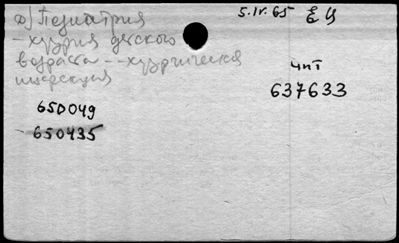 д) Педиатрия
5.IV.65 ЕЦ
- хирургия детского
возраста -- хирургическая
инфекция
чит
637633
650049
650435